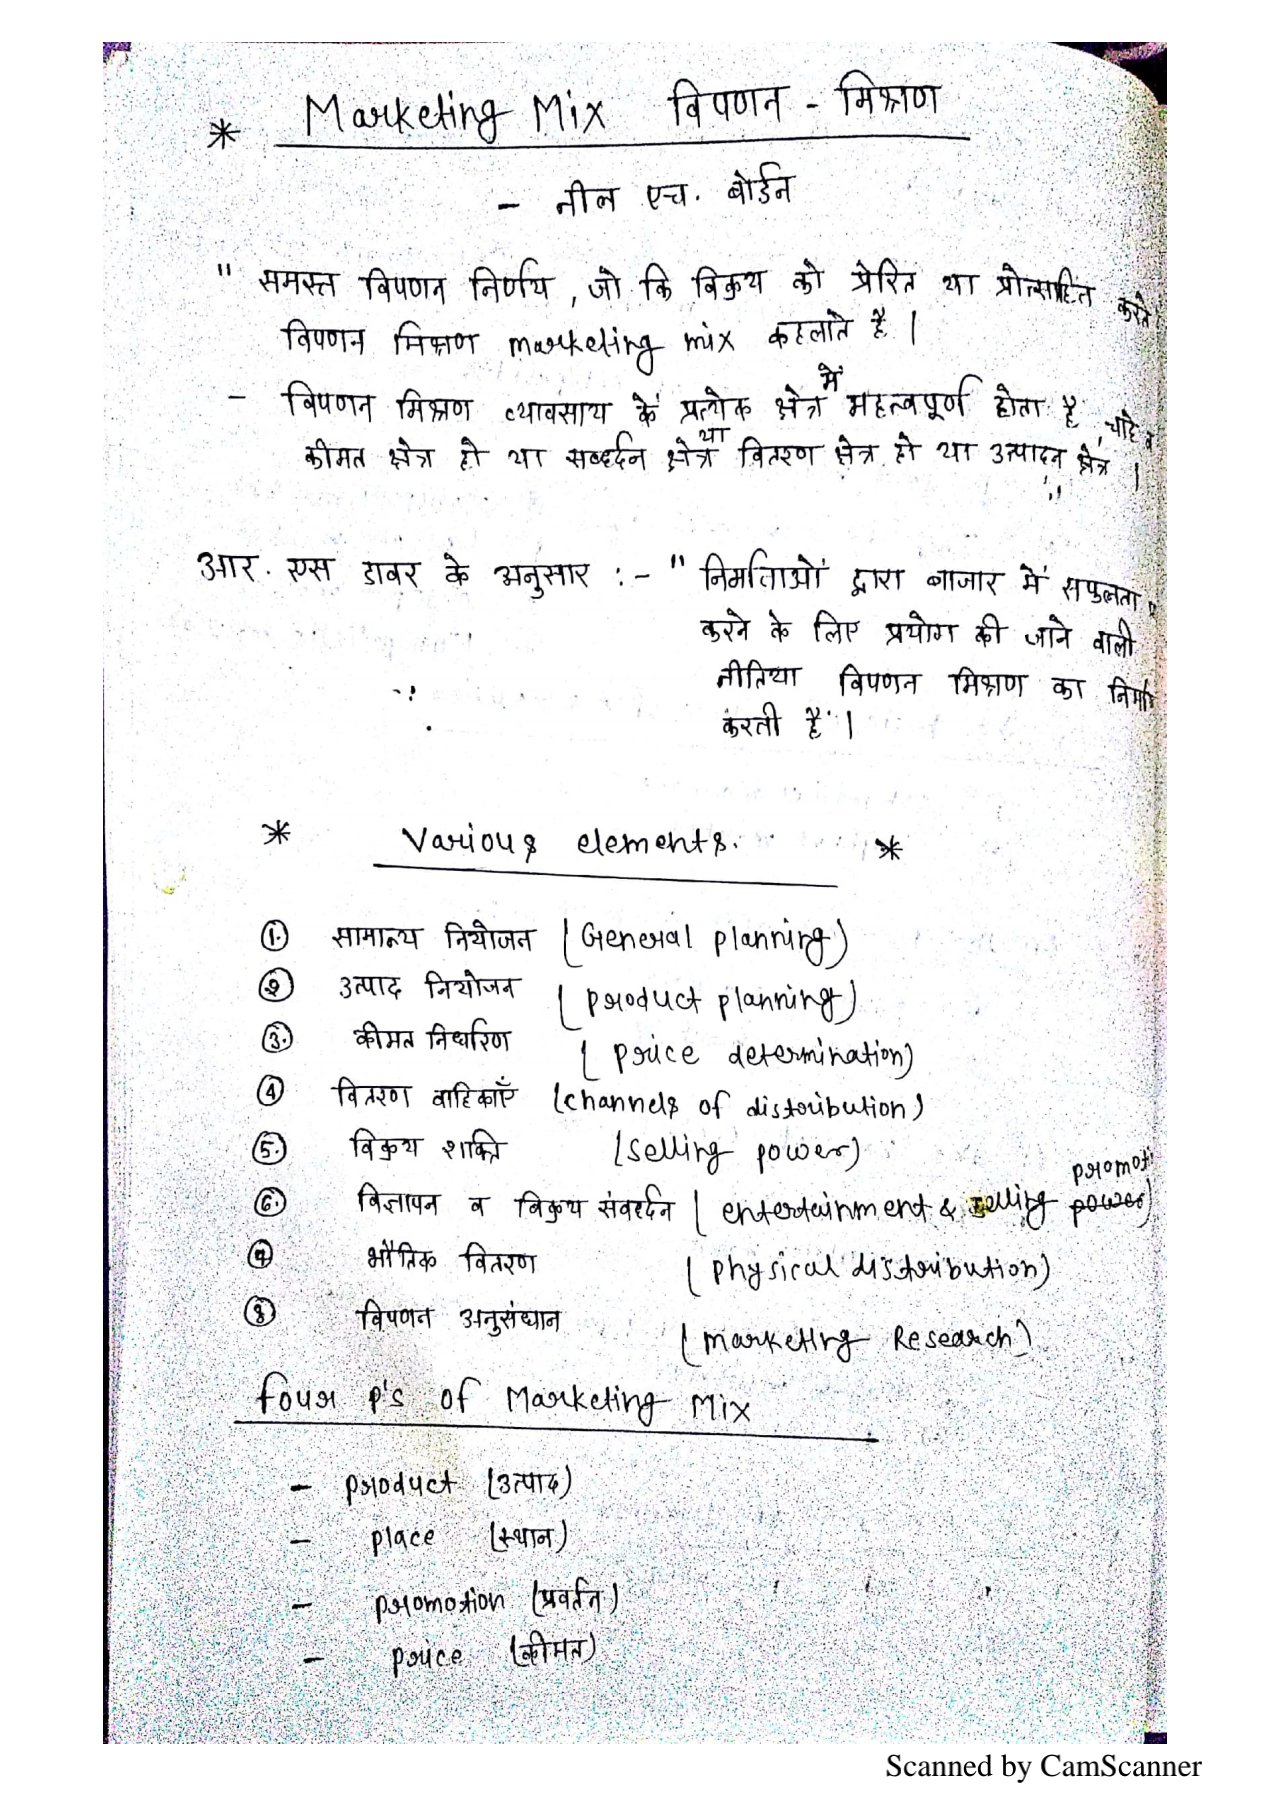 * Marketing Mix विपणन - मिश्रण
- नील एच. बोर्डन
" समस्त विपणन निर्णय , जो कि विक्रय को प्रेरित या प्रोत्साहित करते
विपणन मिश्रण marketing mix कहलाते है |
- विपणन मिश्रण व्यावसाय के प्रत्येक क्षेत्र में महत्वपूर्ण होता है , चाहे व
कीमत क्षेत्र हो या सवर्ध्दन क्षेत्र या वितरण क्षेत्र हो या उत्पादन क्षेत्र | "
आर. एस डावर के अनुसार :- " निर्माताओं द्वारा बाजार में सफलता
करने के लिए प्रयोग की जाने वाली
नीतिया विपणन मिश्रण का निर्मा
करती है |
* Various elements. *
1. सामान्य नियोजन (General planning)
2 उत्पाद नियोजन (product planning)
3. कीमत निर्धारण (price determination)
4 वितरण वाहिकाएँ (channels of distribution)
5. विक्रय शक्ति (selling power)
promoti
6. विज्ञापन व विक्रय संवर्ध्दन (entertainment & selling power)
7 भौतिक वितरण (physical distribution)
8 विपणन अनुसंधान (marketing Research)
four p's of Marketing Mix
- product (उत्पाद)
- place (स्थान)
- promotion (प्रवर्तन)
- price (कीमत)
Scanned by CamScanner